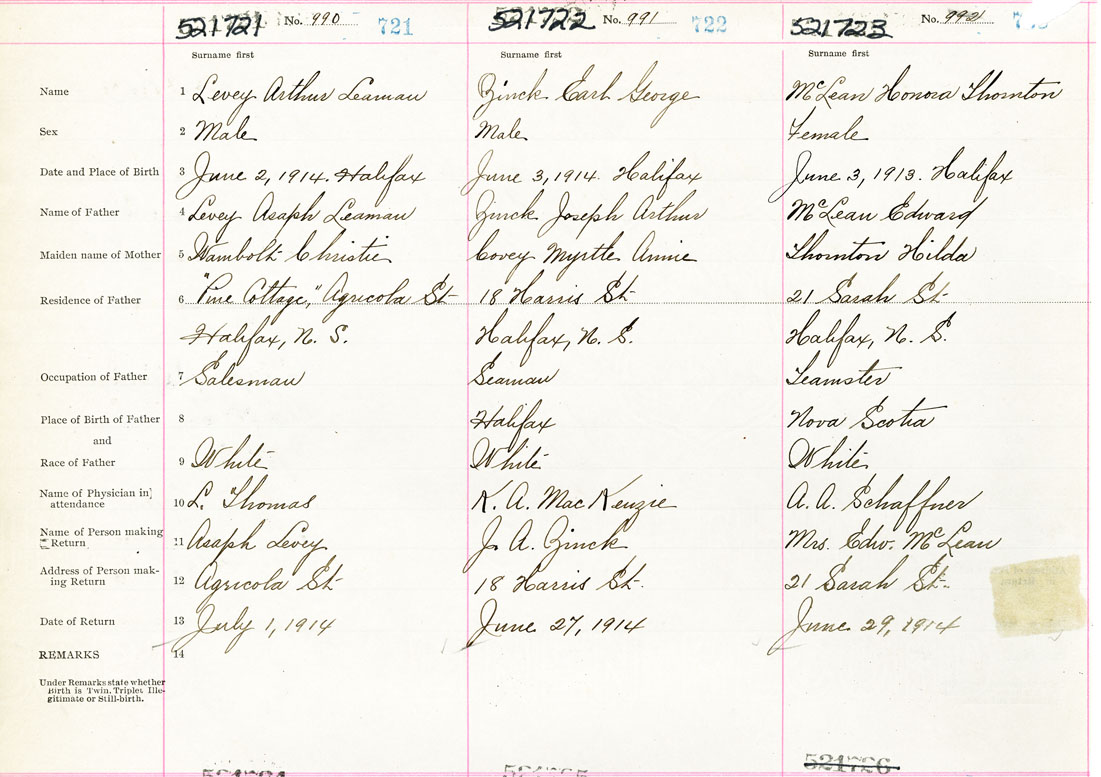 521721 No. 990 721 521722 No. 991 722 521723 No. 992
Surname first Surname first Surname first
Name 1 Levey Arthur Leaman Zinck Earl George McLean Honora Thornton
Sex 2 Male Male Female
Date and Place of Birth 3 June 2, 1914. Halifax June 3, 1914. Halifax June 3, 1913. Halifax
Name of Father 4 Levey Asaph Leaman Zinck Joseph Arthur McLean Edward
Maiden name of Mother 5 Wambolt Christie Covey Myrtle Annie Thornton Hilda
Residence of Father 6 "Pine Cottage," Agricola St 18 Harris St 21 Sarah St
Halifax, N. S. Halifax, N. S. Halifax, N. S.
Occupation of Father 7 Salesman Seaman Teamster
Place of Birth of Father 8 Halifax Nova Scotia
and
Race of Father 9 White White White
Name of Physician in attendance 10 L. Thomas K. A. MacKenzie A. A. Schaffner
Name of Person making Return 11 Asaph Levey J. A. Zinck Mrs. Edw. McLean
Address of Person mak-
ing Return 12 Agricola St 18 Harris St. 21 Sarah St.
Date of Return 13 July 1, 1914 June 27, 1914 June 29, 1914
REMARKS 14
Under Remarks state whether
Birth is Twin, Triplet, Ille-
gitimate or Still-birth.
521726